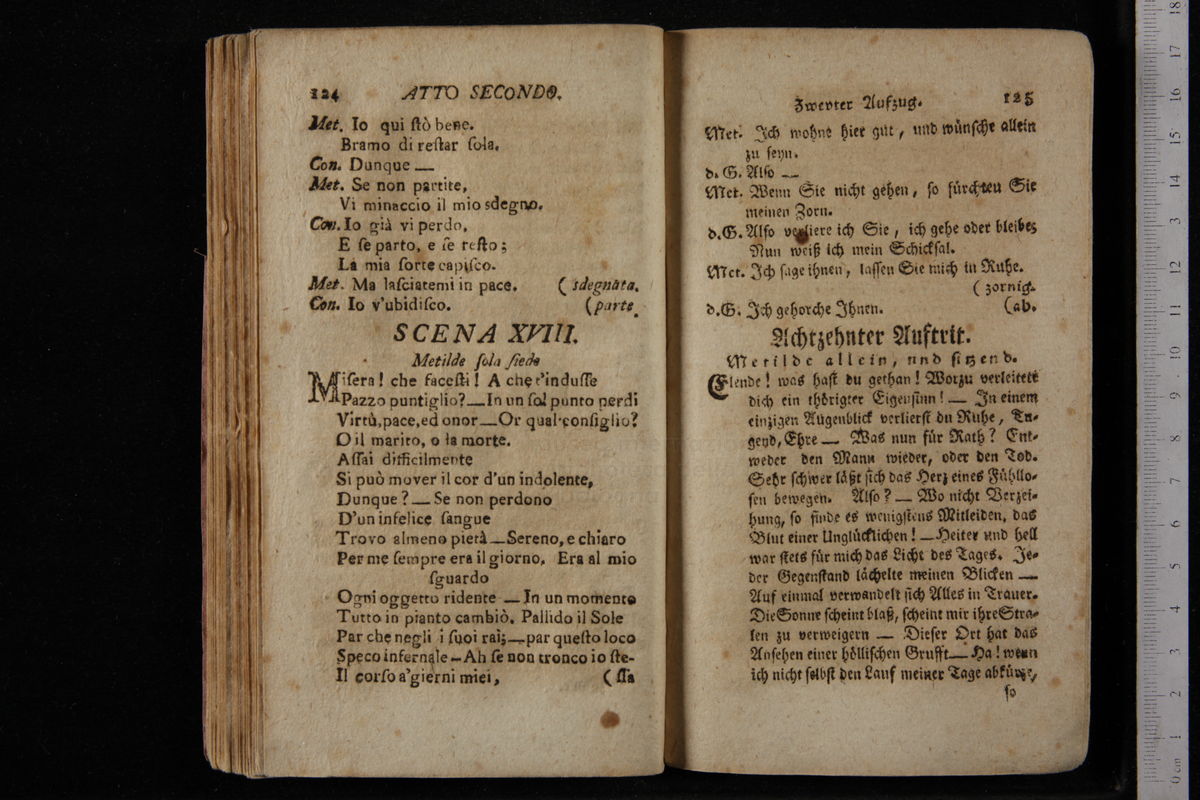 124 ATTO SECONDO.
Met. Io qui ſtò bene.
Bramo di reſtar ſola.
Con. Dunque —
Met. Se non partite,
Vi minaccio il mio sdegno.
Con. Io già vi perdo,
E ſe parto, e ſe reſto;
La mia ſorte capiſco.
Met. Ma laſciatemi in pace. ( sdegnata.
Con. Io v'ubidiſco. (parte.
SCENA XVIII.
Metilde ſola ſiede
Miſera! che faceſti! A che t'induſſe
Pazzo puntiglio? — In un ſol punto perdi
Virtù, pace, ed onor — Or qual conſiglio?
O il marito, o la morte.
Aſſai difficilmente
Si può mover il cor d'un indolente,
Dunque? — Se non perdono
D'un infelice ſangue
Trovo almeno pietà — Sereno, e chiaro
Per me ſempre era il giorno. Era al mio
ſguardo
Ogni oggetto ridente — In un momento
Tutto in pianto cambiò. Pallido il Sole
Par che neghi i ſuoi rai; — par queſto loco
Speco infernale — Ah ſe non tronco io ſte-
Il corſo a'giorni miei, ( ſſa
Zweyter Aufzug. 125
Met. Ich wohne hier gut, und wünſche allein
zu ſeyn.
d. G. Alſo —
Met. Wenn Sie nicht gehen, ſo fürchten Sie
meinen Zorn.
d. G. Alſo verliere ich Sie, ich gehe oder bleibe;
Nun weiß ich mein Schickſal.
Met. Ich ſage ihnen, laſſen Sie mich in Ruhe.
( zornig.
d. G. Ich gehorche Ihnen. (ab.
Achtzehnter Auftrit.
Metilde allein, und ſitzend.
Elende! was haſt du gethan! Worzu verleitete
dich ein thörigter Eigenſinn! — In einem
einzigen Augenblick verlierſt du Ruhe, Tu-
gend, Ehre — Was nun für Rath? Ent-
weder den Mann wieder, oder den Tod.
Sehr ſchwer läßt ſich das Herz eines Fühllo-
ſen bewegen. Alſo? — Wo nicht Verzei-
hung, ſo finde es wenigſtens Mitleiden, das
Blut einer Unglücklichen! — Heiter und hell
war ſtets für mich das Licht des Tages. Je-
der Gegenſtand lächelte meinen Blicken —
Auf einmal verwandelt ſich Alles in Trauer.
Die Sonne ſcheint blaß, ſcheint mir ihre Stra-
len zu verweigern — Dieſer Ort hat das
Anſehen einer hölliſchen Grufft — Ha! wenn
ich nicht ſelbſt den Lauf meiner Tage abkürze,
ſo
0 cm 1 2 3 4 5 6 7 8 9 10 11 12 13 14 15 16 17 18